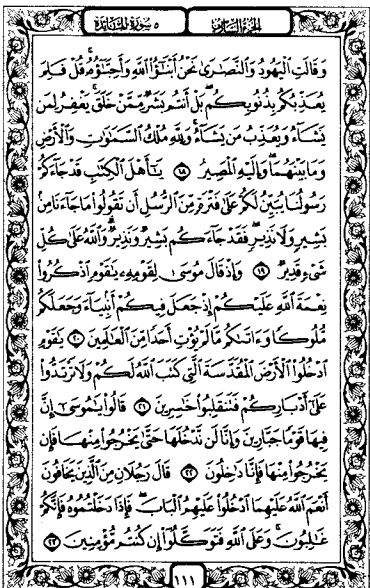 الجزء السادس ٥ سورة المائدة
وَقَالَتِ الْيَهُودُ وَالنَّصَارَىٰ نَحْنُ أَبْنَاءُ اللَّهِ وَأَحِبَّاؤُهُ ۚ قُلْ فَلِمَ
يُعَذِّبُكُم بِذُنُوبِكُم ۖ بَلْ أَنتُم بَشَرٌ مِّمَّنْ خَلَقَ ۚ يَغْفِرُ لِمَن
يَشَاءُ وَيُعَذِّبُ مَن يَشَاءُ ۚ وَلِلَّهِ مُلْكُ السَّمَاوَاتِ وَالْأَرْضِ
وَمَا بَيْنَهُمَا ۖ وَإِلَيْهِ الْمَصِيرُ ١٨ يَا أَهْلَ الْكِتَابِ قَدْ جَاءَكُمْ
رَسُولُنَا يُبَيِّنُ لَكُمْ عَلَىٰ فَتْرَةٍ مِّنَ الرُّسُلِ أَن تَقُولُوا مَا جَاءَنَا مِن
بَشِيرٍ وَلَا نَذِيرٍ ۖ فَقَدْ جَاءَكُم بَشِيرٌ وَنَذِيرٌ ۗ وَاللَّهُ عَلَىٰ كُلِّ
شَيْءٍ قَدِيرٌ ١٩ وَإِذْ قَالَ مُوسَىٰ لِقَوْمِهِ يَا قَوْمِ اذْكُرُوا
نِعْمَةَ اللَّهِ عَلَيْكُمْ إِذْ جَعَلَ فِيكُمْ أَنبِيَاءَ وَجَعَلَكُم
مُّلُوكًا وَآتَاكُم مَّا لَمْ يُؤْتِ أَحَدًا مِّنَ الْعَالَمِينَ ٢٠ يَا قَوْمِ
ادْخُلُوا الْأَرْضَ الْمُقَدَّسَةَ الَّتِي كَتَبَ اللَّهُ لَكُمْ وَلَا تَرْتَدُّوا
عَلَىٰ أَدْبَارِكُمْ فَتَنقَلِبُوا خَاسِرِينَ ٢١ قَالُوا يَا مُوسَىٰ إِنَّ
فِيهَا قَوْمًا جَبَّارِينَ وَإِنَّا لَن نَّدْخُلَهَا حَتَّىٰ يَخْرُجُوا مِنْهَا فَإِن
يَخْرُجُوا مِنْهَا فَإِنَّا دَاخِلُونَ ٢٢ قَالَ رَجُلَانِ مِنَ الَّذِينَ يَخَافُونَ
أَنْعَمَ اللَّهُ عَلَيْهِمَا ادْخُلُوا عَلَيْهِمُ الْبَابَ ۖ فَإِذَا دَخَلْتُمُوهُ فَإِنَّكُمْ
غَالِبُونَ ۚ وَعَلَى اللَّهِ فَتَوَكَّلُوا إِن كُنتُم مُّؤْمِنِينَ ٢٣
١١١